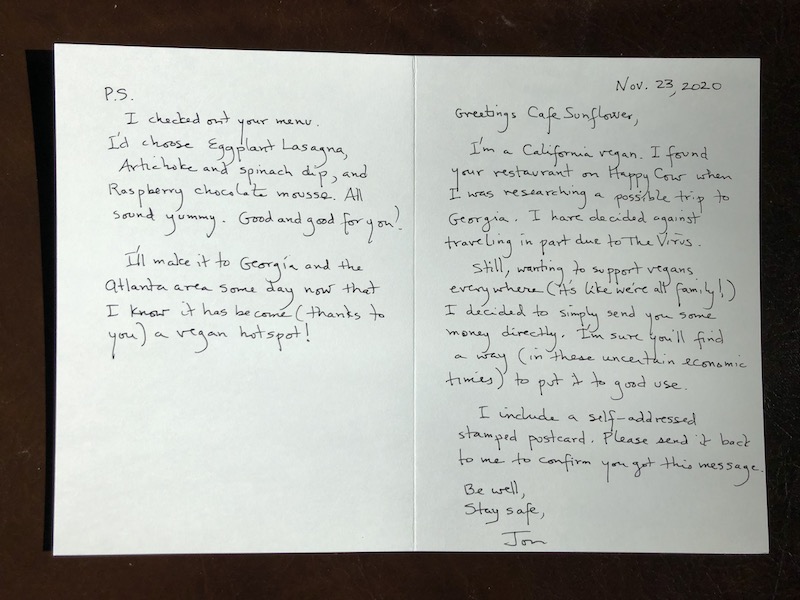 Nov. 23, 2020
Greetings Cafe Sunflower,
I'm a California vegan. I found
your restaurant on Happy Cow when
I was researching a possible trip to
Georgia. I have decided against
traveling in part due to The Virus.
Still, wanting to support vegans
everywhere (it's like we're all family!)
I decided to simply send you some
money directly. I'm sure you'll find
a way (in these uncertain economic
times) to put it to good use.
I include a self-addressed
stamped postcard. Please send it back
to me to confirm you got this message.
Be well,
Stay safe,
Jon
P.S.
I checked out your menu.
I'd choose Eggplant Lasagna,
Artichoke and spinach dip, and
Raspberry chocolate mousse. All
sound yummy. Good and good for you!
I'll make it to Georgia and the
Atlanta area some day now that
I know it has become (thanks to
you) a vegan hotspot!